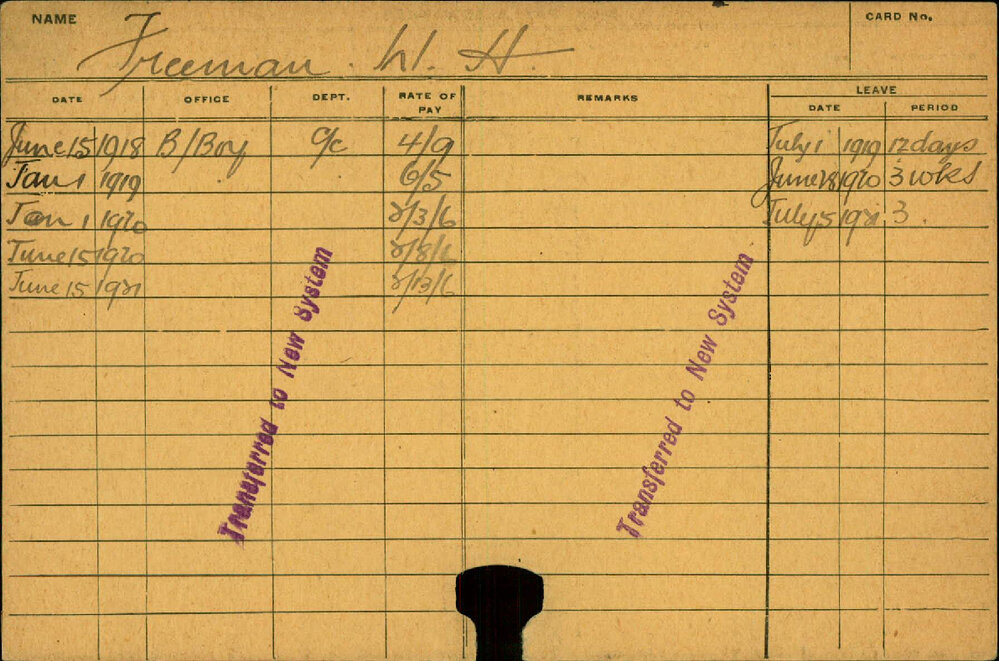 NAME Freeman. W. H. CARD No.
DATE OFFICE DEPT. RATE OF PAY REMARKS LEAVE
DATE PERIOD
June 15 1918 B/Boy C/c 4/9 July 1 1919 12 days
Jan 1 1919 6/5 June 28 1920 3 wks
Jan 1 1920 2/3/6 July 5 1921 3
June 15 1920 2/8/6
June 15 1921 2/13/6
Transferred to New System
Transferred to New System